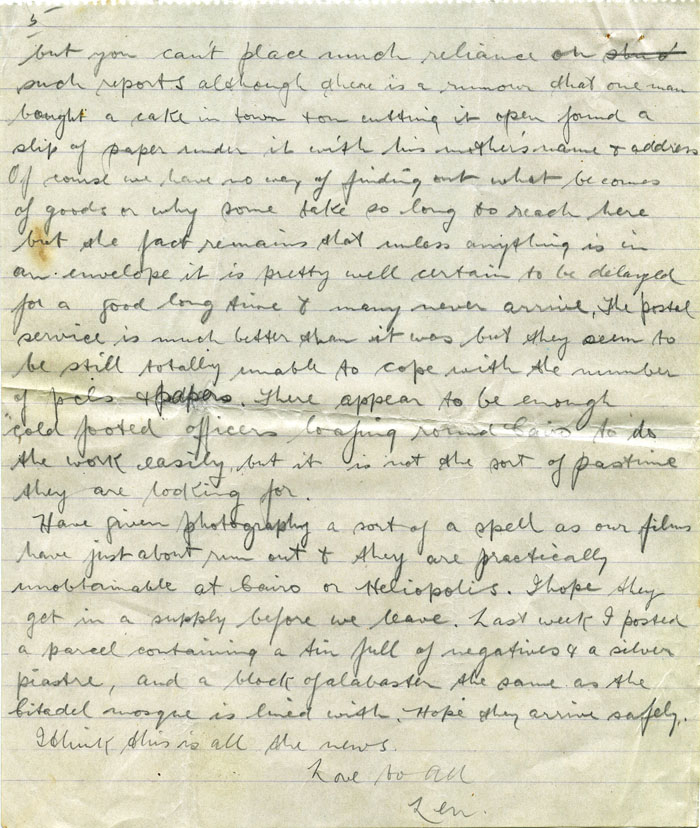 5
but you can't place much reliance on
such reports although there is a rumour that one man
bought a cake in town & on cutting it open found a
slip of paper under it with his mother's name & address
Of course we have no way of finding out what becomes
of goods or why some take so long to reach here
but the fact remains that unless anything is in
an envelope it is pretty well certain to be delayed
for a good long time & many never arrive. The postal
service is much better than it was but they seem to
be still totally unable to cope with the number
of pcls & papers. There appear to be enough
"cold footed" officers loafing round Cairo to do
the work easily, but it is not the sort of pastime
they are looking for.
Have given photography a sort of a spell as our films
have just about run out & they are practically
unobtainable at Cairo or Heliopolis. I hope they
get in a supply before we leave. Last week I posted
a parcel containing a tin full of negatives & a silver
piastre, and a block of alabaster the same as the
Citadel mosque is lined with. Hope they arrive safely.
I think this is all the news.
Love to all
Len.